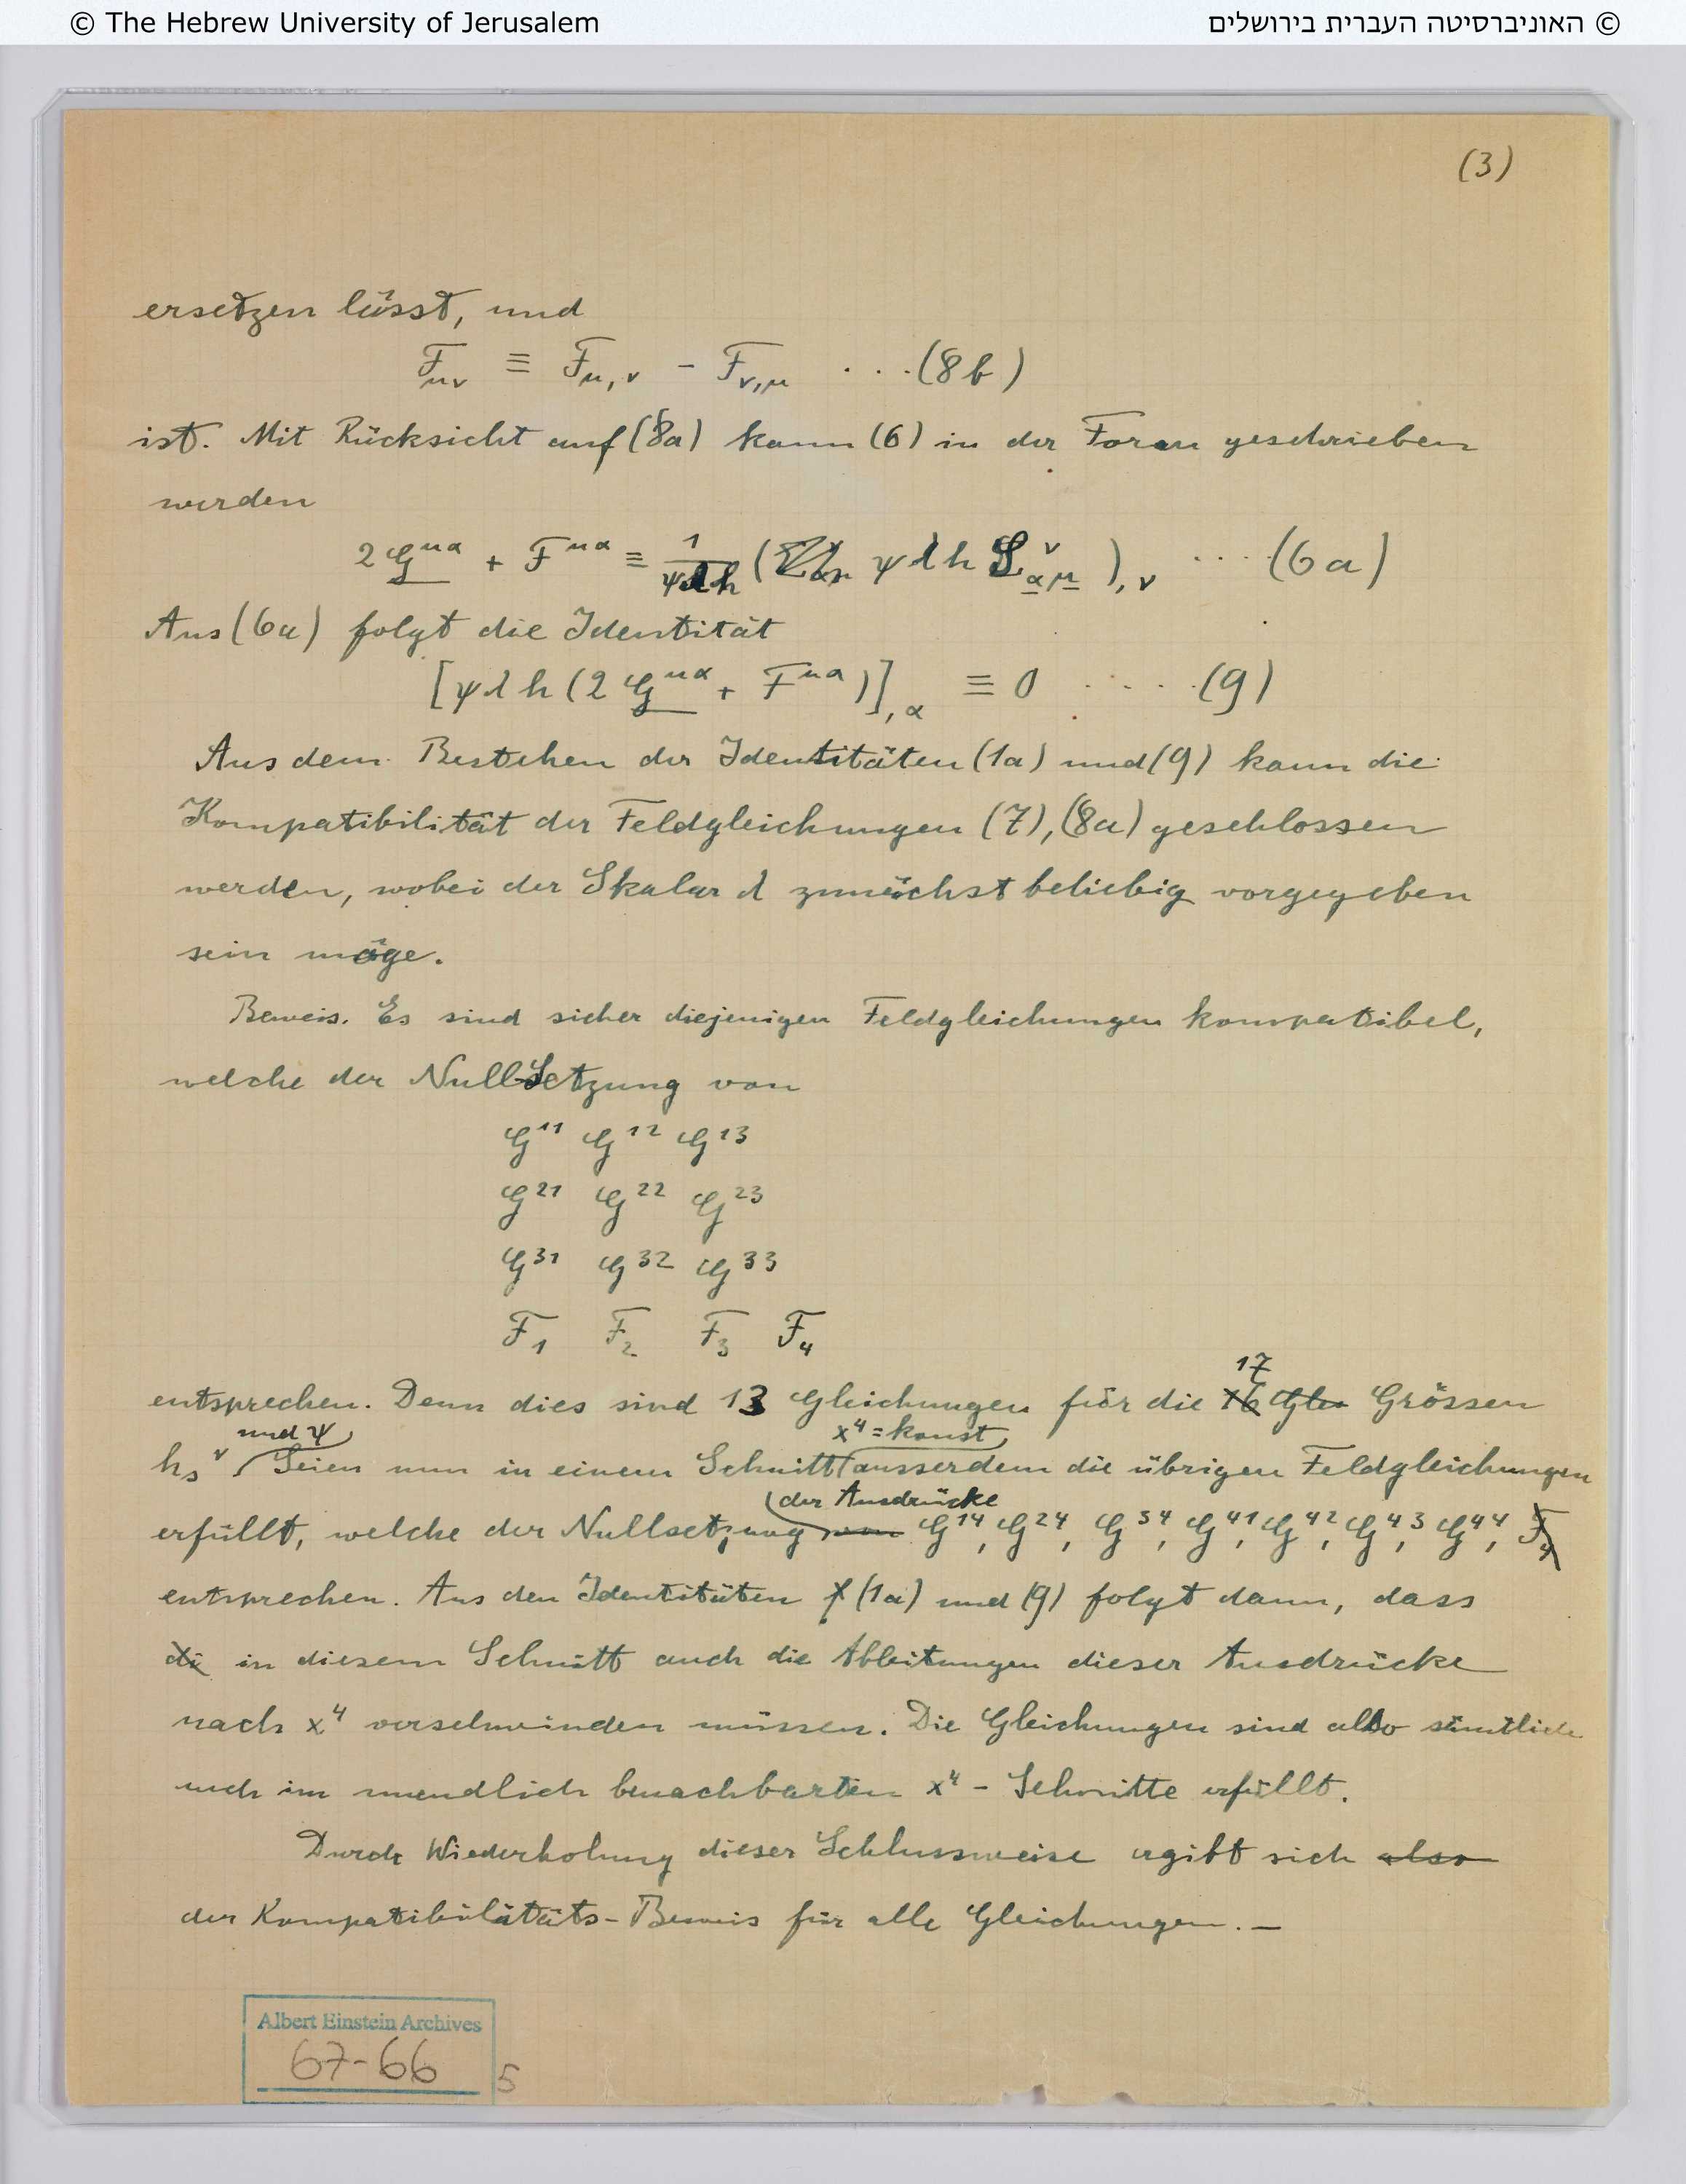 © The Hebrew University of Jerusalem
האוניברסיטה העברית בירושלים ©
(3)
ersetzen lässt, und
F_μν ≡ F_μ,ν − F_ν,μ . . . (8b)
ist. Mit Rücksicht auf (8a) kann (6) in der Form geschrieben
werden
2 G^μα + F^μα ≡ 1/ψλh ( ψλh S^ν_αμ ),ν . . . . (6a)
Aus (6a) folgt die Identität
[ψλh (2 G^μα + F^μα)],α ≡ 0 . . . . . (9)
Aus dem Bestehen der Identitäten (1a) und (9) kann die
Kompatibilität der Feldgleichungen (7), (8a) geschlossen
werden, wobei der Skalar λ zunächst beliebig vorgegeben
sein möge.
Beweis. Es sind sicher diejenigen Feldgleichungen kompatibel,
welche der Nullsetzung von
G^11 G^12 G^13
G^21 G^22 G^23
G^31 G^32 G^33
F_1 F_2 F_3 F_4
17
entsprechen. Denn dies sind 13 Gleichungen für die 16 Glei Grössen
und ψ x^4 = konst
h_s^ν. Seien nun in einem Schnitt ausserdem die übrigen Feldgleichungen
der Ausdrücke
erfüllt, welche der Nullsetzung von G^14, G^24, G^34, G^41, G^42, G^43, G^44, F_4
entsprechen. Aus den Identitäten (1a) und (9) folgt dann, dass
di in diesem Schnitt auch die Ableitungen dieser Ausdrücke
nach x^4 verschwinden müssen. Die Gleichungen sind also sämtlich
auch im unendlich benachbarten x^4 - Schnitte erfüllt.
Durch Wiederholung dieser Schlussweise ergibt sich also
der Kompatibilitäts-Beweis für alle Gleichungen. —
Albert Einstein Archives
67-66
5